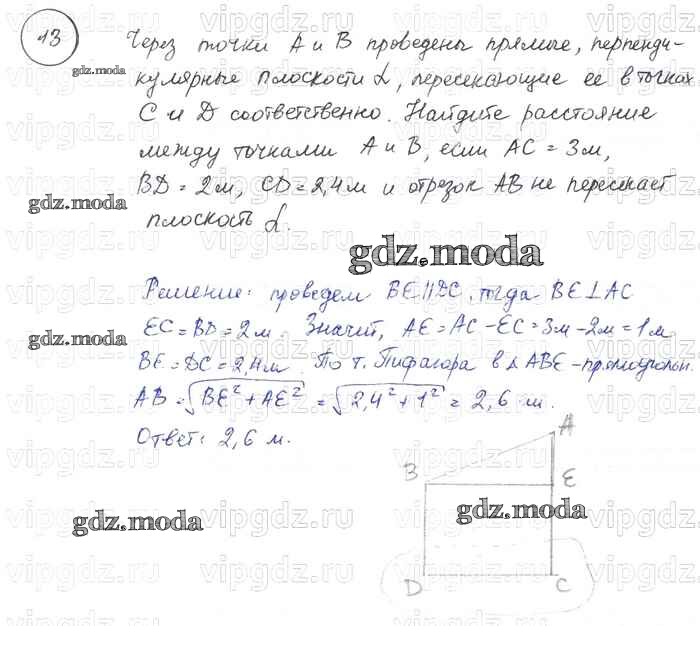 13
Через точки А и В проведены прямые, перпенди-
кулярные плоскости α, пересекающие ее в точках
С и D соответственно. Найдите расстояние
между точками А и В, если АС = 3м,
BD = 2м, CD = 2,4м и отрезок АВ не пересекает
плоскость α.
Решение: проведем BE||DC, тогда BE⊥AC
EC = BD = 2м. Значит, AE = AC - EC = 3м - 2м = 1м
BE = DC = 2,4м. По т. Пифагора в Δ ABE - прямоугольн.
AB = √BE² + AE² = √2,4² + 1² = 2,6 м.
Ответ: 2,6 м.
A
B E
D C
gdz.moda
gdz.moda
gdz.moda
gdz.moda
gdz.moda
gdz.moda
vipgdz.ru